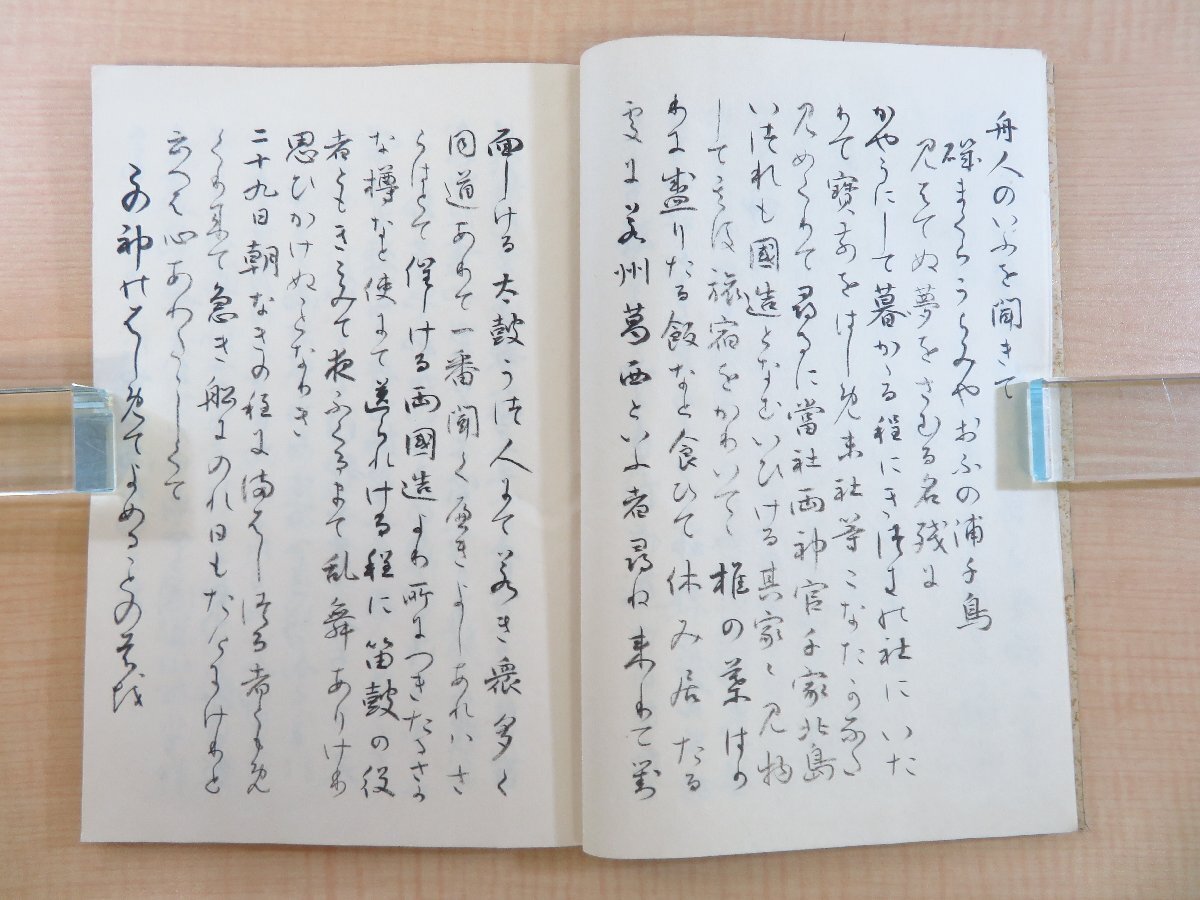 舟人のいふを聞きて
礒まくらうらみやおふの浦千鳥
見はてぬ夢をさむる名残に
かやうにして暮かゝる程にきつきの社にいた
りて寶前をはしめ末社等こなたかなた
見めくりて尋るに當社両神官千家北島
いつれも國造となむいひける其家々見物
してその後旅宿をかりいてゝ椎の葉はか
りに盛りたる飯なと食ひて休み居たる
處に若州葛西といふ者尋ね来りて對
面しける太鼓うつ人にて若き衆多く
同道ありて一番聞くへきよしあれはさ
らはとて催しける両國造より所につきたるさか
な樽なと使にて送られける程に笛鼓の役
者ともきこみて夜ふくるまて乱舞ありけり
思ひかけぬことなりき
二十九日朝なきの程に
くり来て急き船にのれ日もたけにけりと
云へは心あわたゝしくて
神のはしめてよめることのはを